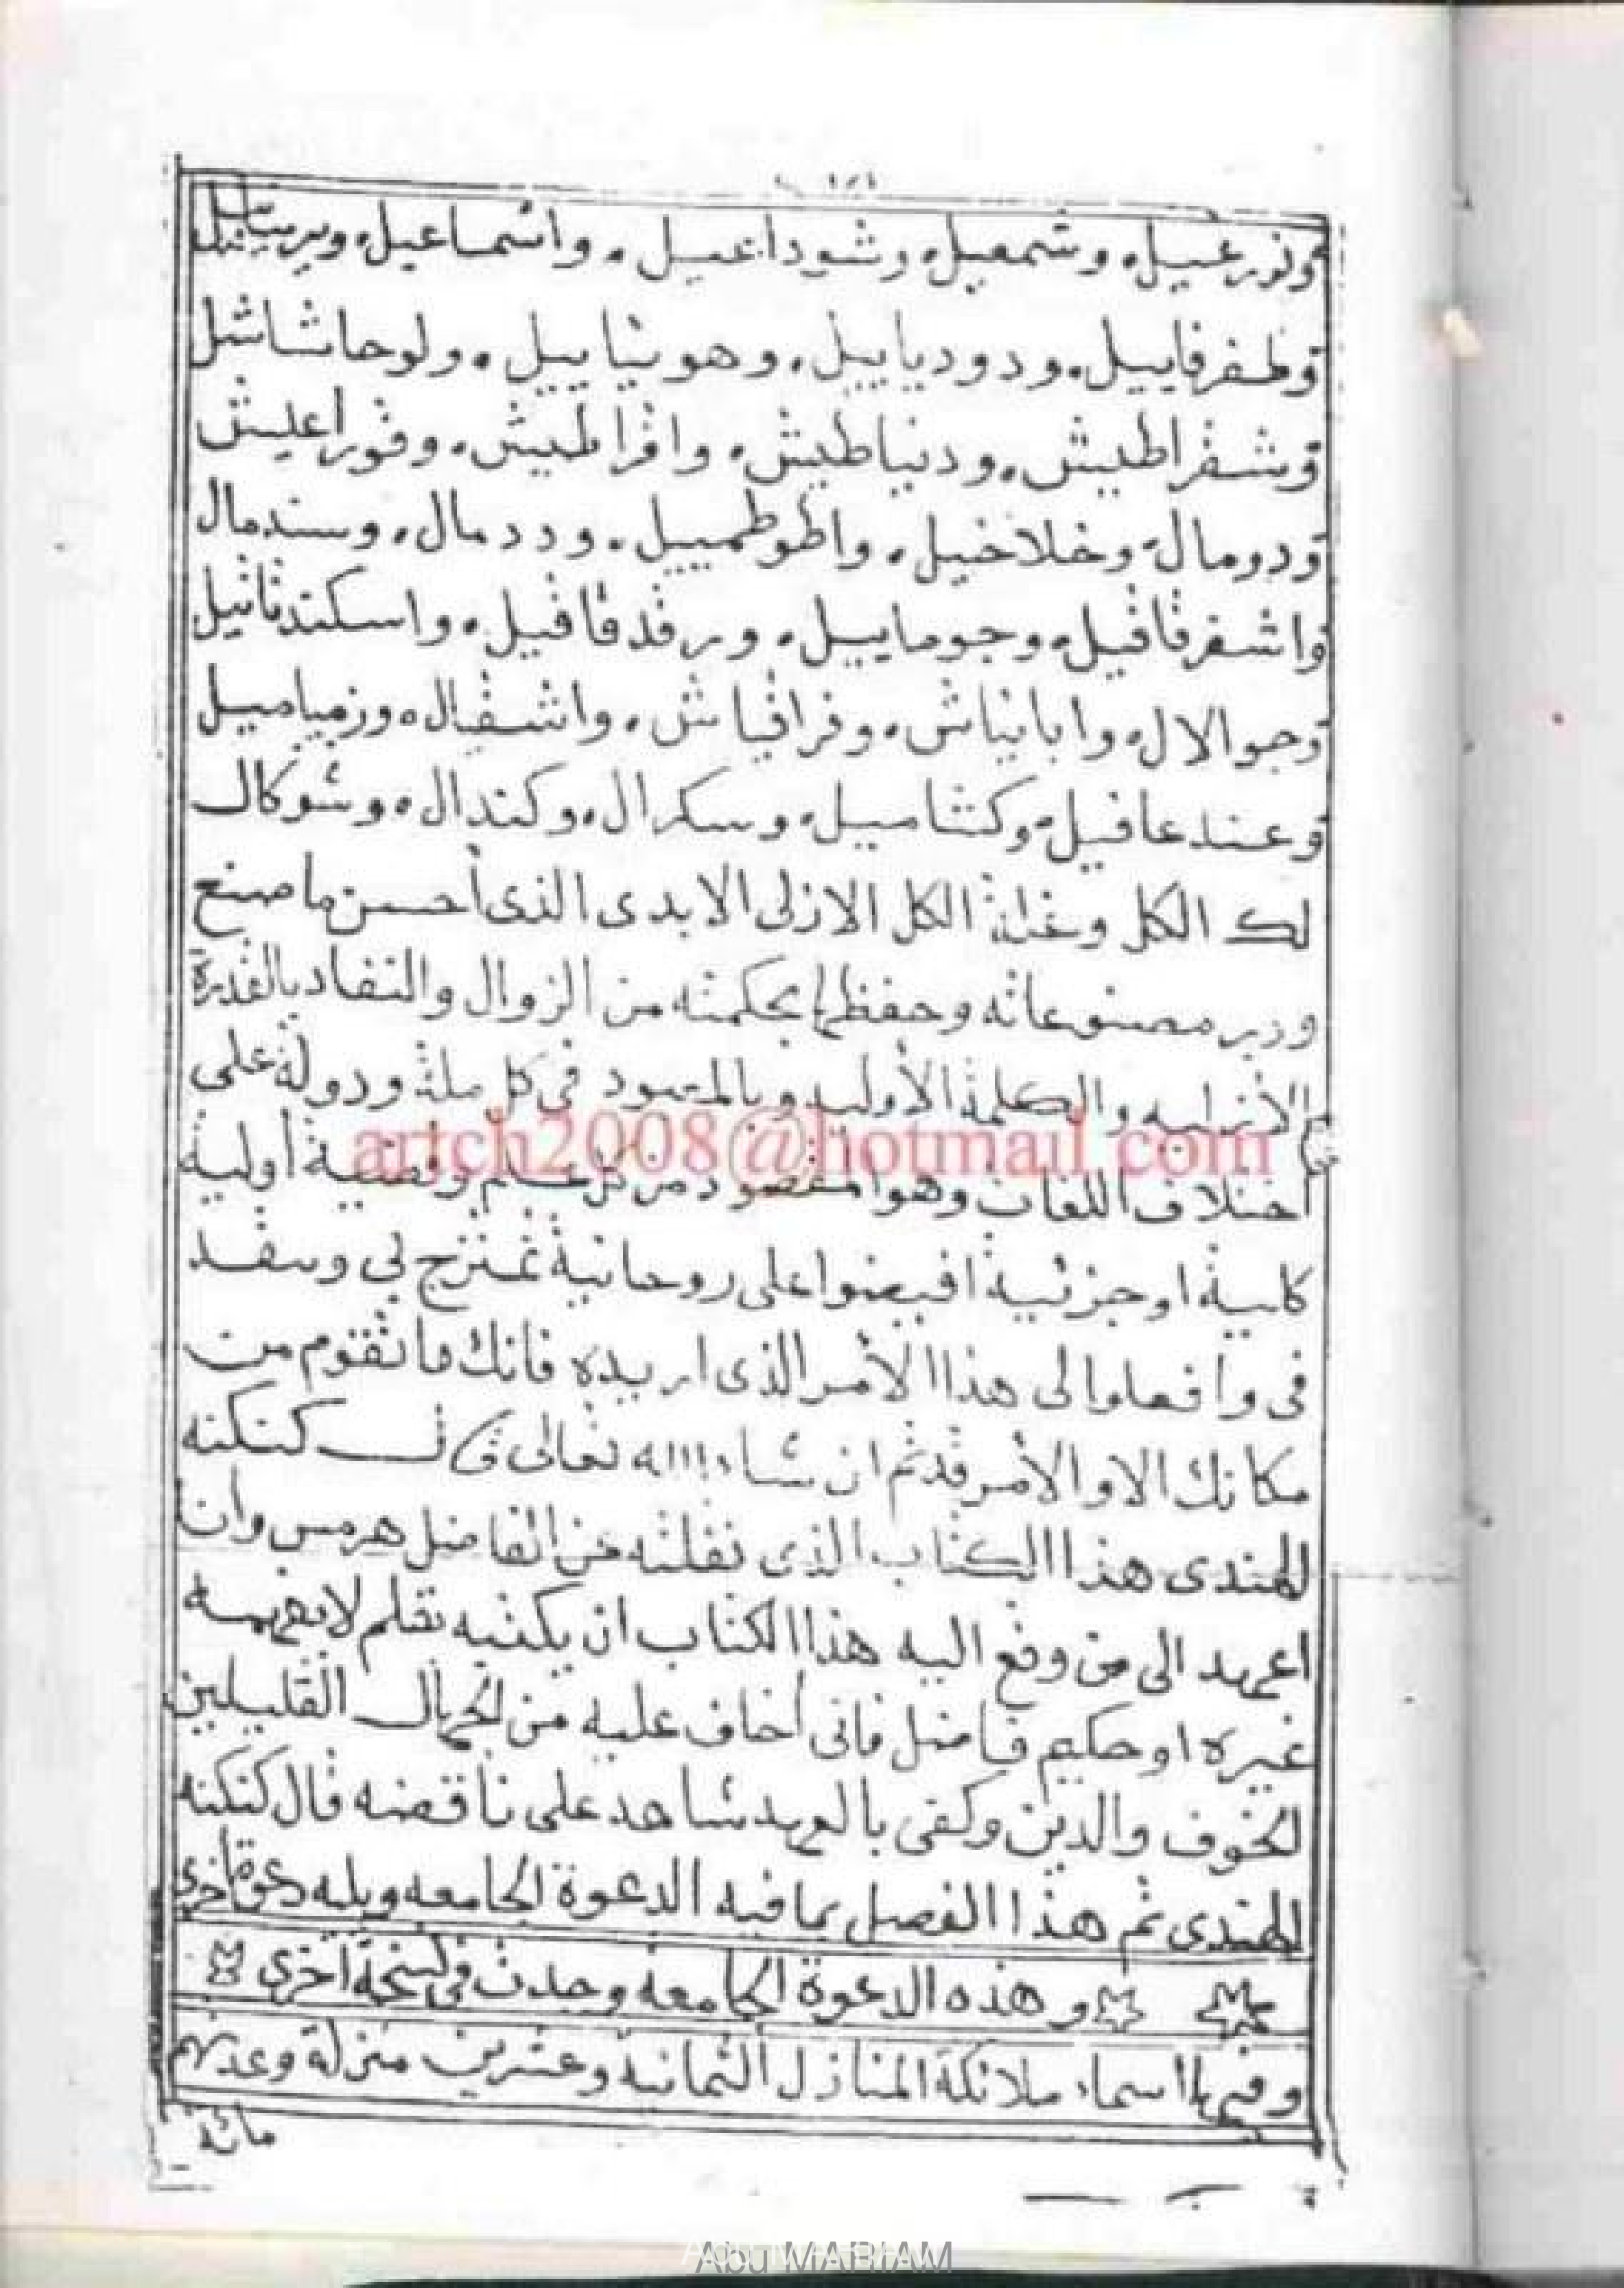 ونزرعيل، وشمعيل، وشوداعيل، واشماعيل،
وظفرفاييل، ودودياييل، وهوشاييل، ولوحاشاشل
وشفراطيش، ودنياطيش، وافراطيش، وفوراعليش
ودومال، وخلاخيل، واطوطمييل، وددمال، وسندمال
واشفرقاقيل، وجوماييل، ورقدقاقيل،
وجوالال، وابايناش، وفراقياش، واشفيال، وزمياميل
وعندعاقيل، وكنثاميل، وسكرال، وكندال، وشوكال
لك الكل وغاية الكل الازلى الابدى الذى أحسن ما صنع
ودبر مصنوعاته وحفظها بحكمته من الزوال والنفاد بالقدرة
الازلية والكلمة الأولية وبالمعبود فى كل ملة ودولة على
اختلاف اللغات وهو المقصود من كل علم وقضية أولية
كلية او جزئية افيضوا على روحانية تمتزج لى وتنفد
فى وافعلوا لى هذا الأمر الذى اريده فانك ما تقوم من
مكانك الا والامر قد تم ان شاء الله تعالى قال كنكنه
الهندى هذا الكتاب الذى نقلته عن الفاضل هرمس وأنا
اعهد الى من وقع اليه هذا الكتاب ان يكتبه بقلم لا يفهمه
غيره او حكيم فاضل فانى أخاف عليه من الجهال القليلين
الخوف والدين وكفى بالعهد شاهد على ناقضه قال كنكنه
الهندى تم هذا الفصل بما فيه الدعوة الجامعه ويليه دعوة أخرى
وهذه الدعوة الجامعه وجدت فى نسخة أخرى
وفيها اسماء ملائكة المنازل الثمانية وعشرين منزلة وعدتهم
مائة
artch2008@hotmail.com
Abu MARIAM